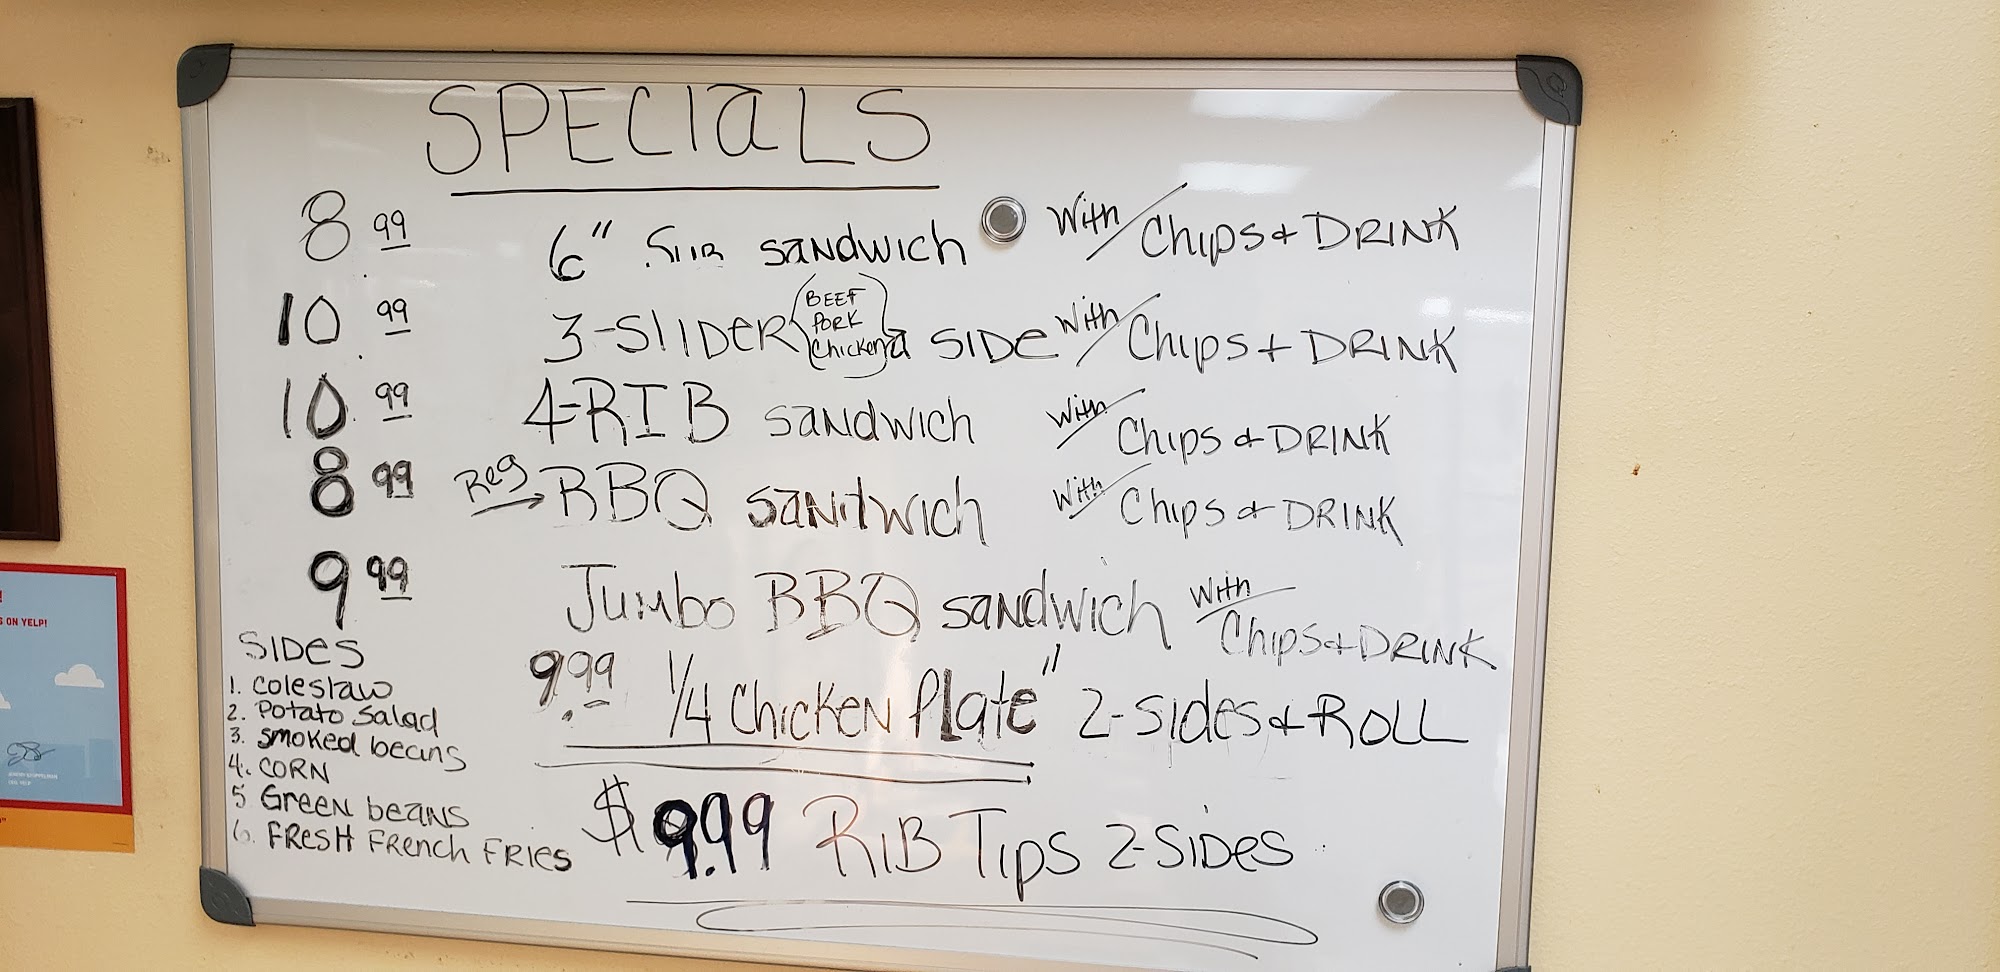 SPECIaLS
8.99 6" SUB sandwich With Chips & DRINK
10.99 3-SlIDER (BEEF PORK Chicken) a SIDE With Chips + DRINK
10.99 4-RIB sandwich With Chips & DRINK
8.99 Reg BBQ sandwich With Chips & DRINK
9.99 Jumbo BBQ sandwich With Chips & DRINK
9.99 1/4 Chicken Plate" 2-Sides & ROLL
$9.99 RIB Tips 2-SIDes
SIDes
1. coleslaw
2. Potato Salad
3. smoked beans
4. CORN
5 Green beans
6. FRESH FRench FRIes
S ON YELP!